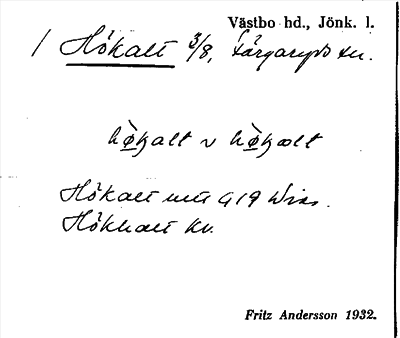 Västbo hd., Jönk. l.
/ Hökalt 3/8, Färgaryds sn.
hø̀kalt ~ hø̀kalt
Hökalt 1619 Wiss.
Hökhalt Kv.
Fritz Andersson 1932.